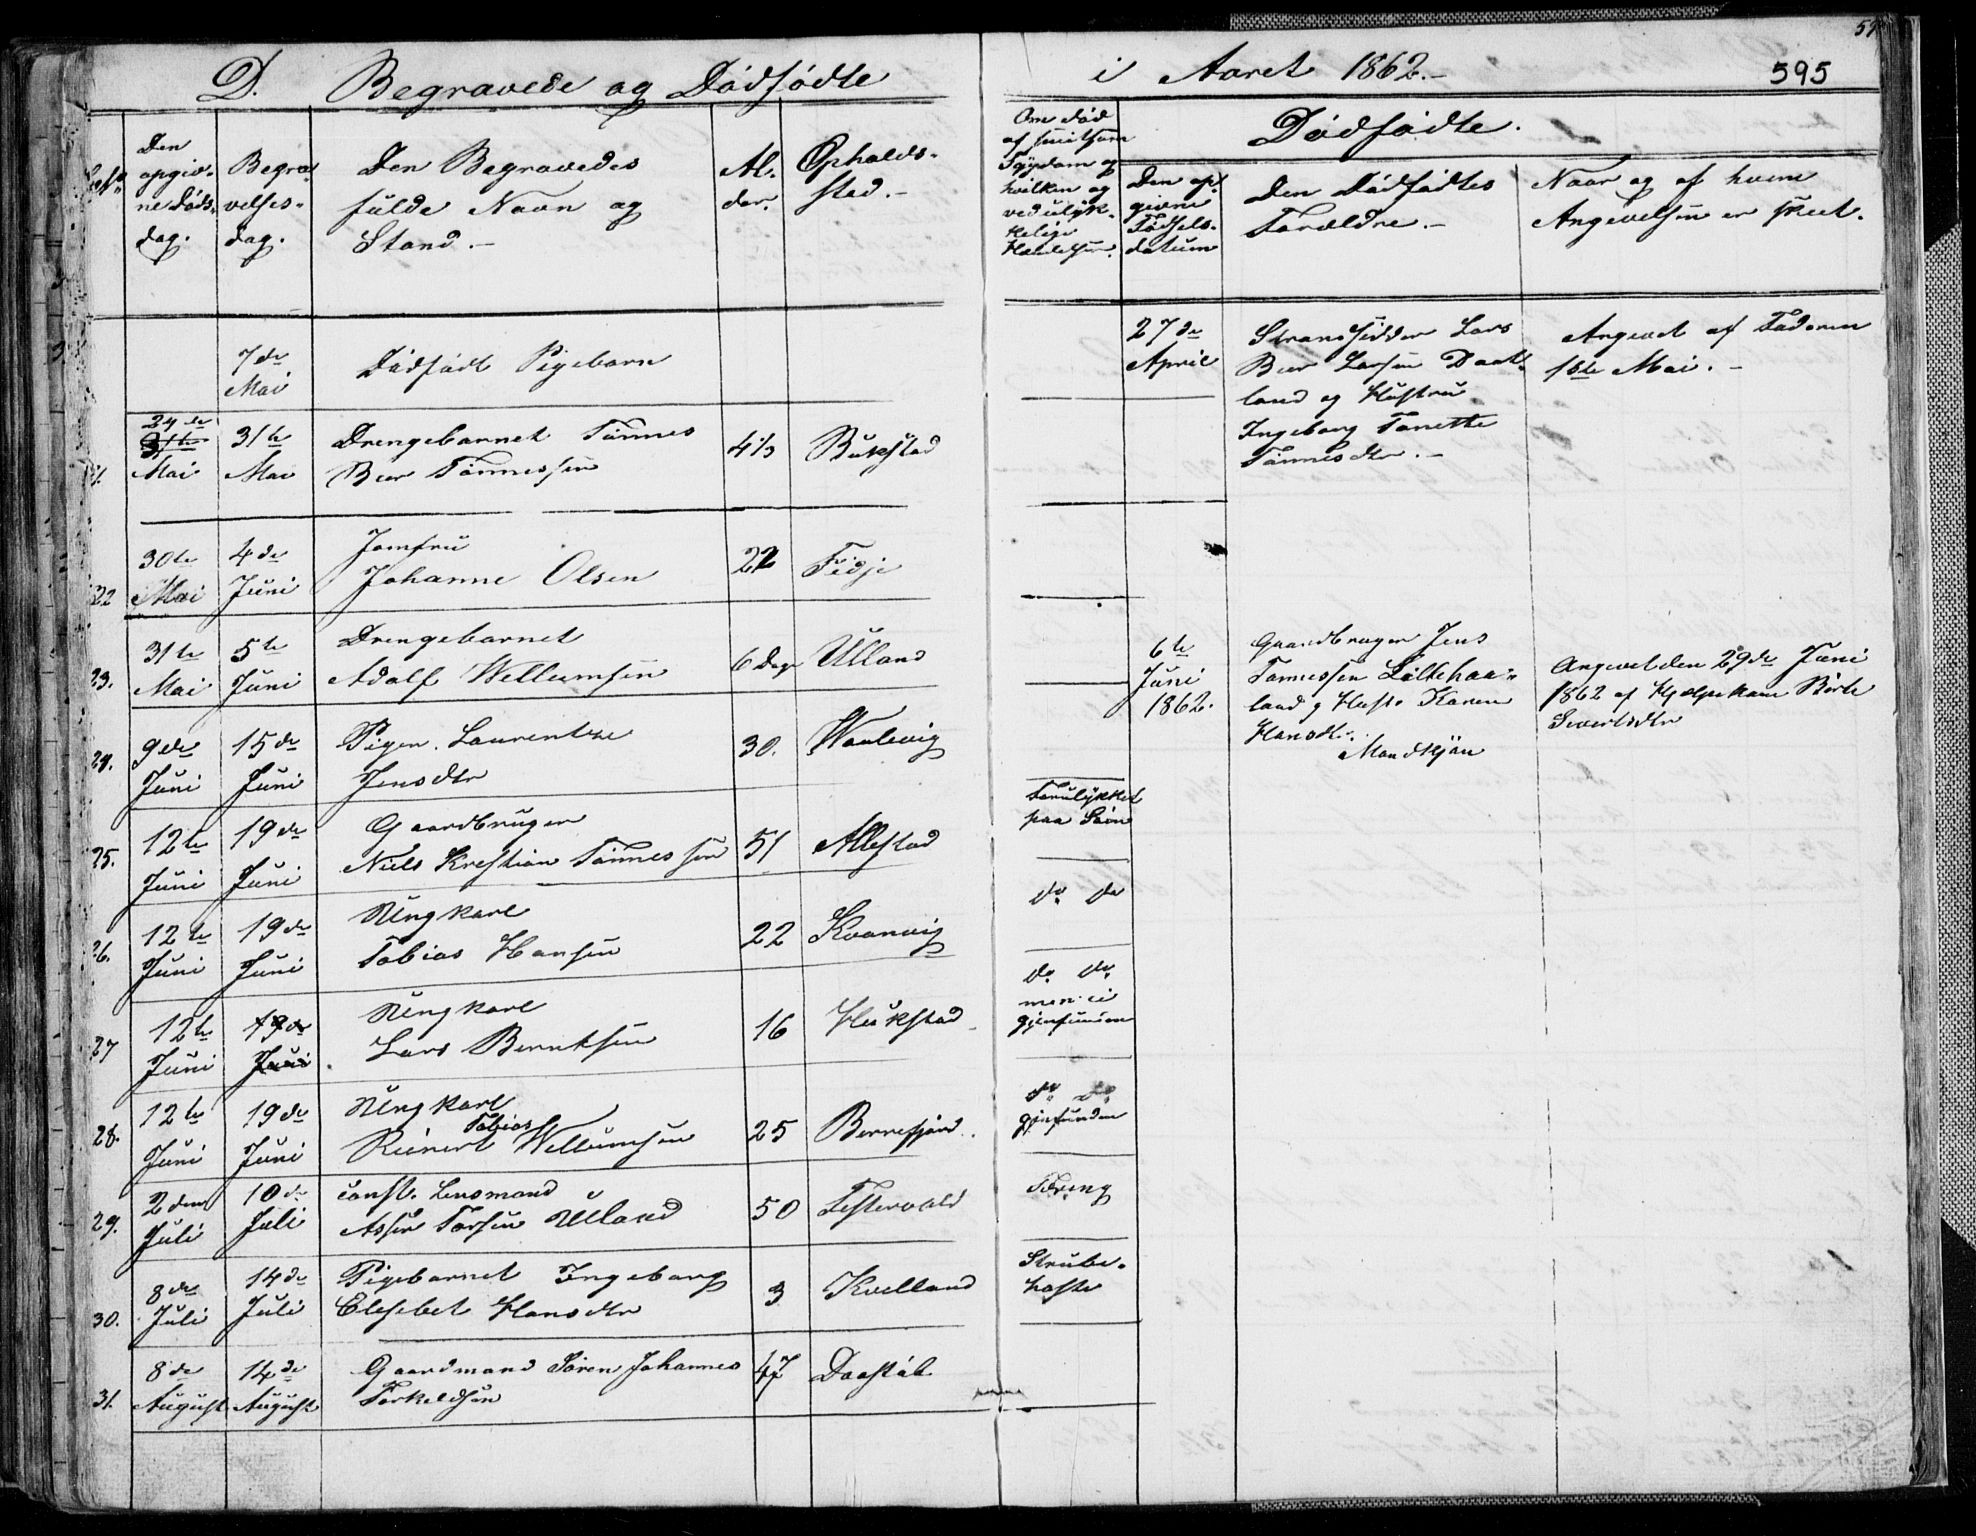 D. Begravede og Dødfødte i Aaret 1862.-
595
Den opgiv-
ne Døds-
dag.
Begra-
velses-
dag.
Den Begravedes
fulde Navn og
Stand.-
Al-
der.
Opholds-
sted.-
Om død
af smitsom
Sygdom og
hvilken og
ved ulyk-
kelige
Hændelser.
Dødfødte.
Den op-
givne
Fødsels-
datum
Den Dødfødtes
Forældre.-
Naar og af hvem
Angivelsen er skeet.
7de
Mai
Dødfødt Pigebarn
27de
April
Strandsidder Lars
Beer Larsen Daat-
land og Hustru
Ingeborg Tonette
Tønnesdtr.-
Angivet af Faderen
1ste Mai.-
24de
31te
Mai
31te
Mai
Drengebarnet Tønnes
Beer Tønnessen
4 1/3
Bukstad
22
30te
Mai
4de
Juni
Jomfru
Johanne Olsen
22
Fidje
23.
31te
Mai
5te
Juni
Drengebarnet
Adolf Wellumsen
6 Dage
Ulland
6te
Juni
1862.
Gaardbruger Jens
Tønnessen Lillehaa-
land og Hust. Karen
Hansdtr.
Mandkjøn
Angivet den 29de Juni
1862 af Hjælpekone Börte
Sivertsdtr
24.
9de
Juni
15de
Juni
Pigen Laurentze
Jensdtr
30.
Waalevig
25.
12te
Juni
19de
Juni
Gaardbruger
Niels Krestian Tønnessen
51
Allestad
Forulykket
paa Søen
26.
12te
Juni
19de
Juni
Ungkarl
Tobias Hansen
22
Kvanvig
do do
27
12te
Juni
19de
Juni
Ungkarl
Lars Berntsen
16
Hukstad
do do
men ei
gjenfunden
28.
12te
Juni
19de
Juni
Ungkarl
Tobias
Reinert Wellumsen
25
Bernefjord.
do do
gjenfunden
29.
2den
Juli
10de
Juli
const. Lensmand
Asser Torsen Ulland
50
Festervold
Tæring
30.
8de
Juli
14de
Juli
Pigebarnet Ingeborg
Elesebet Hansdtr
3
Kvelland
Strube-
hoste
31.
8de
August
14de
August
Gaardmand Søren Johannes
Torkeldsen
47
Daastøl